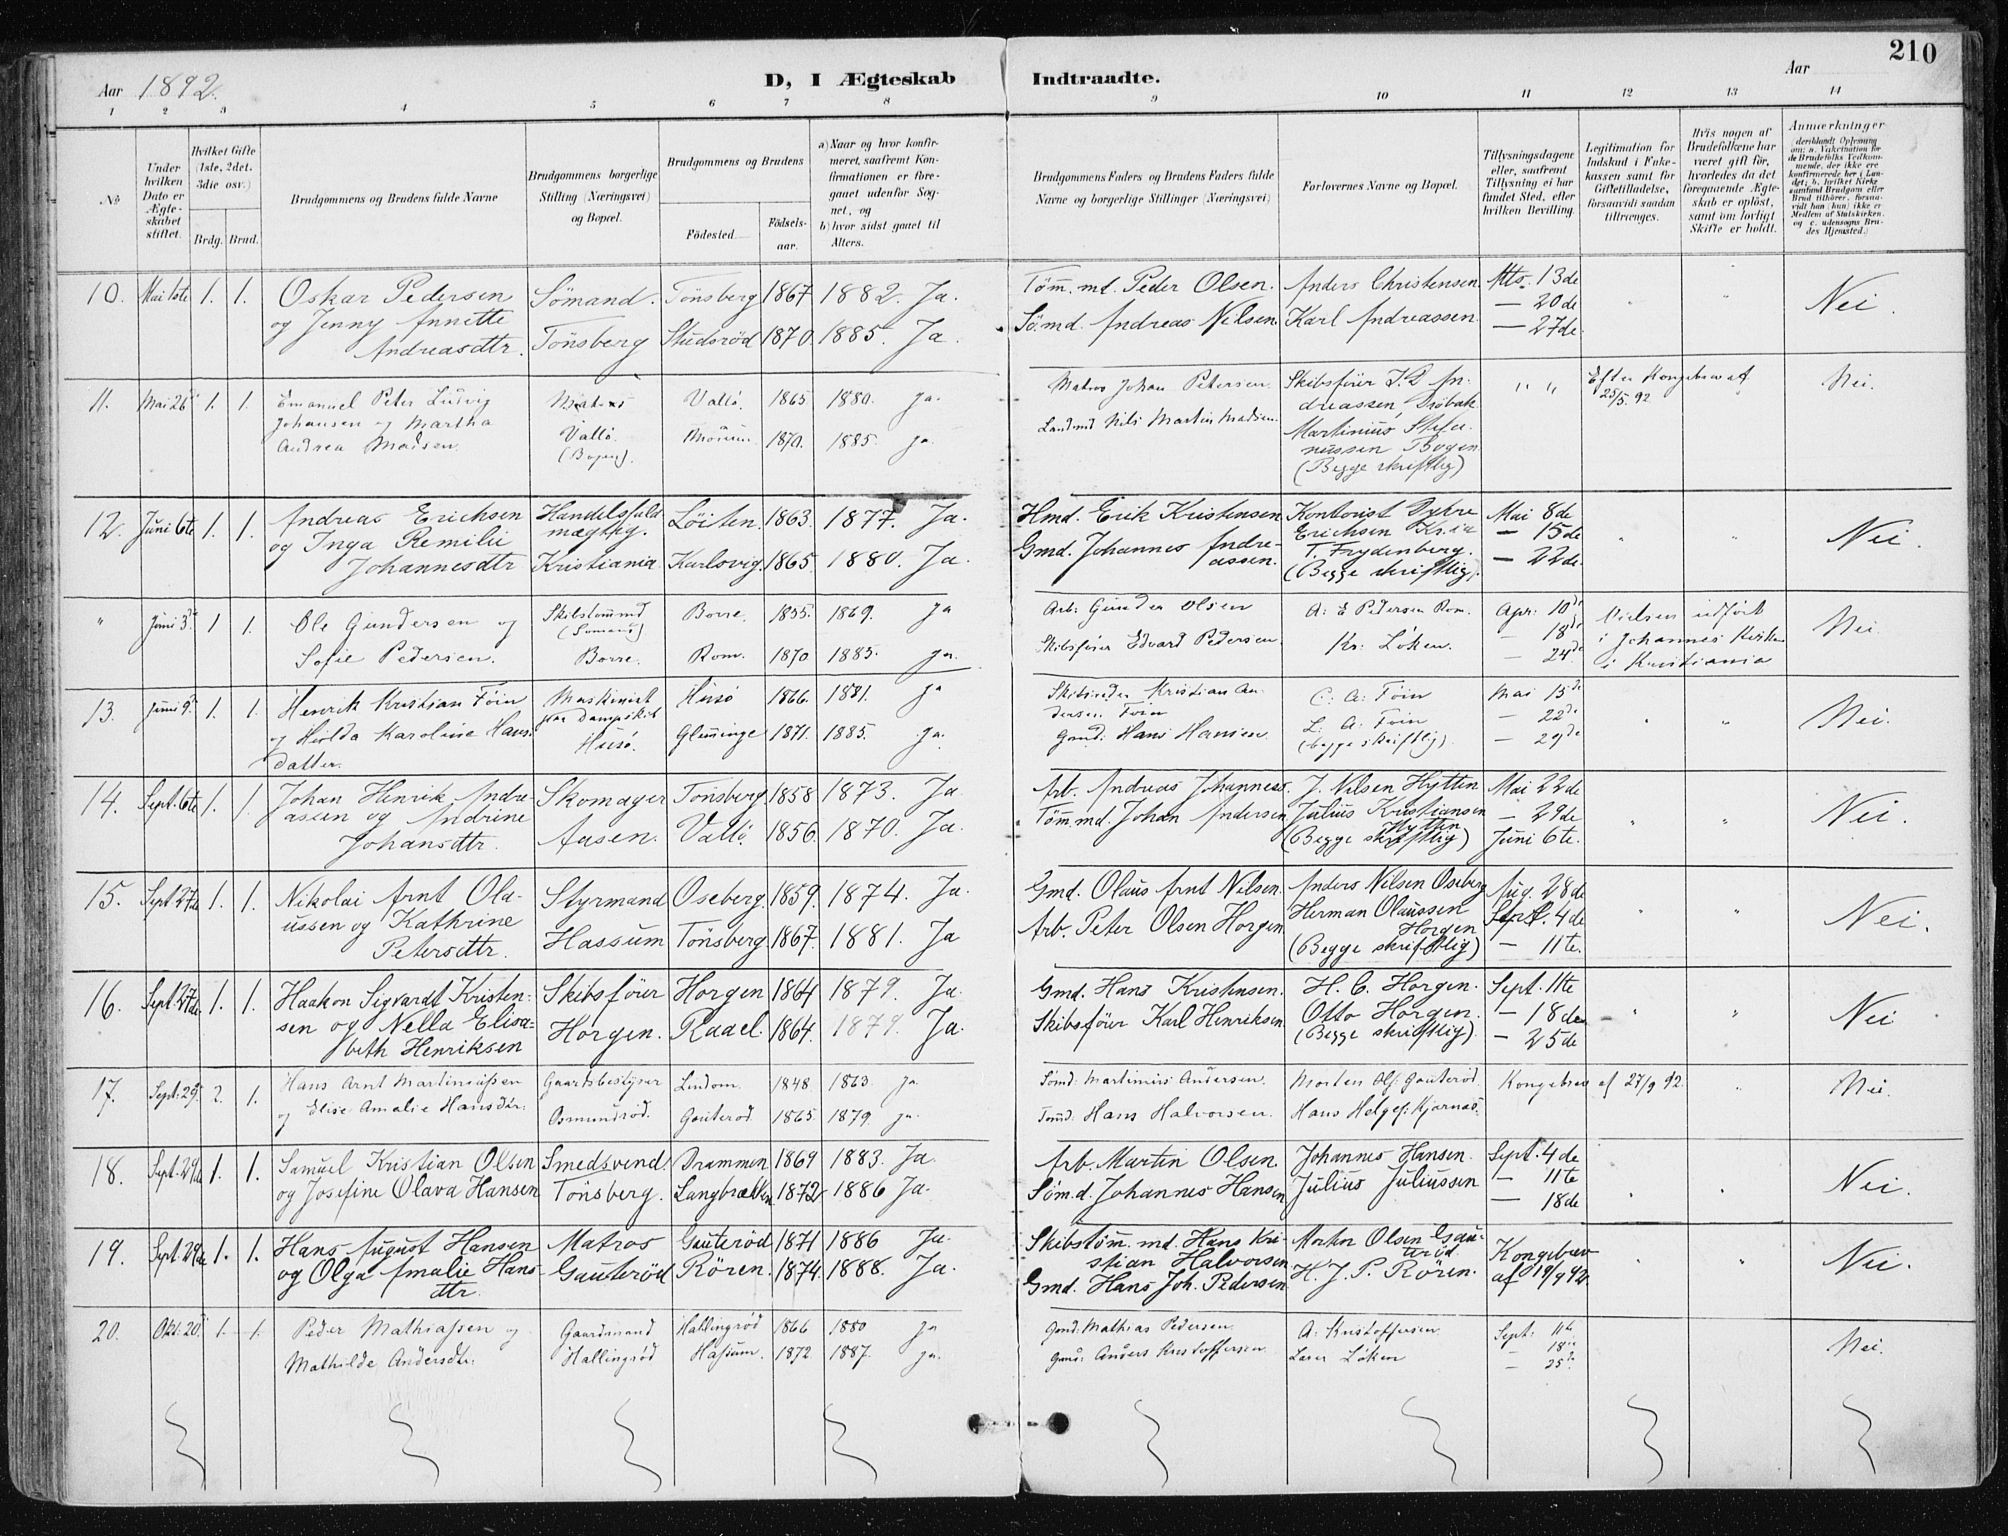 210
Aar 1892. D, I Ægteskab Indtraadte. Aar
1 2 3 4 5 6 7 8 9 10 11 12 13 14
No
Under hvilken Dato er Ægteskabet stiftet.
Hvilket Gifte (1ste, 2det, 3die osv.)
Brdg. Brud.
Brudgommens og Brudens fulde Navne
Brudgommens borgerlige Stilling (Næringsvei) og Bopæl.
Brudgommens og Brudens
Fødested. Fødsels-aar.
a) Naar og hvor konfirmeret, saafremt Konfirmationen er foregaaet udenfor Sognet, og
b) hvor sidst gaaet til Alters.
Brudgommens Faders og Brudens Faders fulde Navne og borgerlige Stillinger (Næringsvei)
Forlovernes Navne og Bopæl.
Tillysningsdagene eller, saafremt Tillysning ei har fundet Sted, efter hvilken Bevilling.
Legitimation for Indskud i Enkekassen samt for Giftetilladelse, forsaavidt saadan tiltrænges.
Hvis nogen af Brudefolkene har været gift før, hvorledes da det foregaaende Ægteskab er opløst, samt om lovligt Skifte er holdt.
Anmærkninger
10. Mai 1ste 1. 1. Oskar Pedersen Sömand. Tönsberg 1867 1882. Ja. Töm. md. Peder Olsen. Anders Christensen. Mts. 13de " " Nei.
og Jenny Annette Tönsberg Studsröd 1870. 1885. Ja. Sö.md. Andreas Nilsen. Karl Andreassen. — 20de
Andreasdtr. — 27de
11. Mai 26 1. 1. Emanuel Peter Ludvig Matros Vallö. 1865 1880. ja. Matros Johan Petersen. Skibsförer J. L An- " " Efter Kongebrev af Nei.
Johansen og Martha Vallö. 1870. 1885. ja. Landmd Nils Martin Madsen. dreassen, Dröbak 25/5. 92
Andrea Madsen. (Bogen). Martinius Stefa-
nussen Bogen
(Begge skriftlig)
12. Juni 6te 1. 1. Andreas Erichsen Handelsfuld- Löiten. 1863. 1877. Ja. Hmd. Erik Kristensen Kontorist Mai 8de " " Nei.
og Inga Remilie mægtig. Erichsen Kr.ia — 15de
Johannesdtr Kristiania Karlsvig. 1865. 1880. Ja. Gmd. Johannes Andre- T. Frydenberg. — 22de.
assen. (Begge skriftlig).
" Juni 3de 1 1. Ole Gundersen og Skibstömmd Borre. 1855. 1869. ja Arb: Gunder Olsen A: E Pedersen Rom. Apr: 10de Vielsen udfört Nei.
Sofie Pedersen. (Sömand) Borre. Rom. 1870 1885. ja. Skibsförer Edvard Pedersen. Kr: Löken. — 18de i Johannes Kirken
— 24de i Kristiania
13. Juni 9de 1. 1. Henrik Kristian Föin Maskinist Husö 1866. 1881. ja Skibsreder Kristian An- C. A: Föin Mai 15de " " Nei.
og Hilda Karoline Hans- paa Dampskib dersen Föin L. A: Föin — 22de
datter. Husö. Glimminge 1871. 1885. ja. Gmd: Hans Hansen (begge skriftlig). — 29de
14. Sept. 6te 1. 1. Johan Henrik Andre- Skomager Tönsberg 1858 1873 Ja Arb. Andreas Johanness. J. Nilsen Hytten Mai 22de " " Nei.
assen og Andrine Aasen. Vallö. 1856. 1870. Ja. Töm.md. Johan Andersen Julius Kristiansen — 29de
Johansdtr. Hytten
(Begge skriftlig) Juni 6te.
15. Sept 27de 1. 1. Nikolai Arnt Ola- Styrmand Oseberg. 1859. 1874. Ja. Gmd. Olaus Arnt Nilsen. Anders Nilsen Oseberg Aug. 28de " " Nei.
ussen og Kathrine Hassum Tönsberg 1867. 1881. Ja Arb. Peter Olsen Horgen Herman Olaussen Sept. 4de
Petersdtr. Horgen
(Begge skriftlig) — 11te.
16. Sept. 27de 1. 1. Haakon Sigvardt Kristen- Skibsförer Horgen 1864 1879. Ja. Gmd. Hans Kristensen. H. C. Horgen. Sept. 11te " " Nei
sen og Nella Elisa- Horgen. Raael. 1864. 1879. Ja. Skibsförer Karl Henriksen Otto Horgen. — 18de
beth Henriksen (Begge skriftlig). — 25de
17. Sept. 29 2. 1. Hans Arnt Martiniussen Gaardsbestyrer Lindom. 1848 1863. ja. Sømd: Martinius Andersen. Morten Ols: Gauteröd. Kongebrev af 27/9 92. " Nei.
og Elise Amalie Hansdtr: Osmundröd. Gauteröd 1865. 1879. ja. Tømd: Hans Halvorsen. Hans Helges: Kjærnæs.
18. Sept. 29de 1. 1. Samuel Kristian Olsen Smedsvend. Drammen 1869 1883. Ja. Arb. Martin Olsen. Johannes Hansen. Sept. 4de " " Nei.
og Josefine Olava Hansen Tönsberg. Langbrækken 1872 1886 Ja. Söm.d. Johannes Hansen Julius Juliussen — 11te
— 18de
19. Sept. 29de 1. 1. Hans August Hansen Matros Gauteröd 1871 1886 Ja. Skibstöm. md. Hans Kri- Morten Olsen Gau- Kongebrev " " Nei.
og Olga Amalie Hans- Gauteröd Rören. 1874. 1888. Ja. stian Halvorsen teröd. af 19/9 92.
dtr. Gmd. Hans Joh. Pedersen H. J. P. Rören.
20. Okt. 20de 1. 1. Peder Mathiassen og Gaardmand Hallingröd 1866 1880 ja Gmd: Mathias Pedersen. A: Kristoffersen Sept: 11te Nei.
Mathilde Andersdtr: Hallingröd Hassum. 1872. 1887. ja. Gmd: Anders Kristoffersen Löken — 18de
— 25de